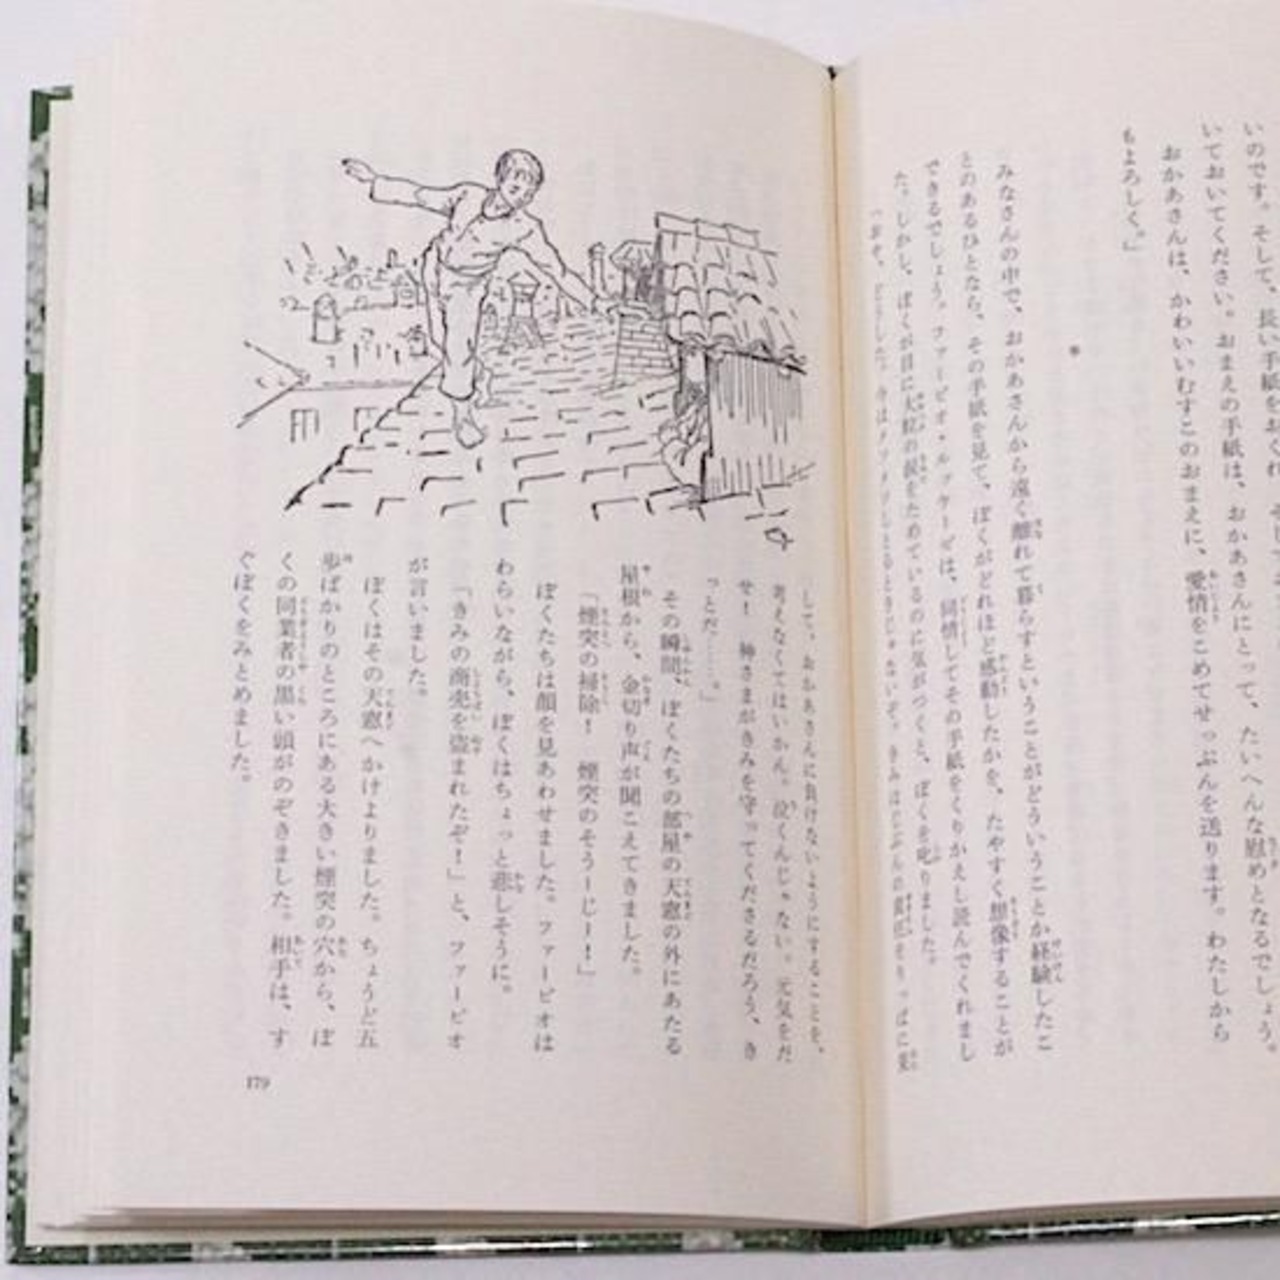 いのです。そして、長い手紙をおくれ。そして
いておいてください。おまえの手紙は、おかあさんにとって、たいへんな慰めとなるでしょう。
おかあさんは、かわいいむすこのおまえに、愛情をこめてせっぷんを送ります。わたしから
もよろしく。」
*
みなさんの中で、おかあさんから遠く離れて暮らすということがどういうことか経験したこ
とのあるひとなら、その手紙を見て、ぼくがどれほど感動したかを、たやすく想像することが
できるでしょう。ファービオ・ルッケージは、同情してその手紙をくりかえし読んでくれまし
た。しかし、ぼくが目に大粒の涙をためているのに気がつくと、ぼくを叱りました。
して、おかあさんに負けないようにすることを、
考えなくてはいかん。泣くんじゃない。元気をだ
せ! 神さまがきみを守ってくださるだろう、き
っとだ……。」
その瞬間、ぼくたちの部屋の天窓の外にあたる
屋根から、金切り声が聞こえてきました。
「煙突の掃除! 煙突のそうーじー!」
ぼくたちは顔を見あわせました。ファービオは
わらいながら、ぼくはちょっと悲しそうに。
「きみの商売を盗まれたぞ!」と、ファービオ
が言いました。
ぼくはその天窓へかけよりました。ちょうど五
歩ばかりのところにある大きい煙突の穴から、ぼ
くの同業者の黒い頭がのぞきました。相手は、す
ぐぼくをみとめました。
179